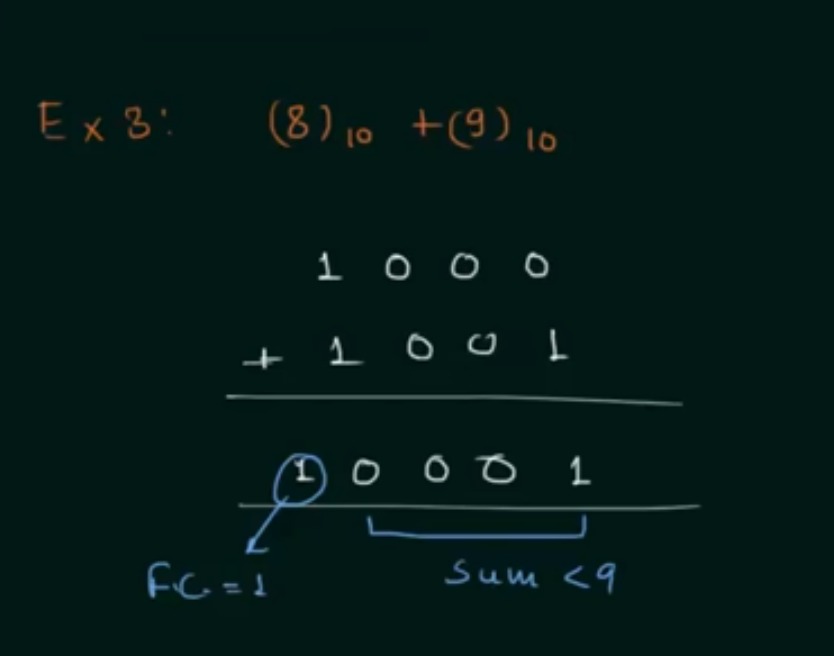 Ex 3: (8)10 + (9)10
1 0 0 0
+ 1 0 0 1
1 0 0 0 1
F.C. = 1
Sum < 9